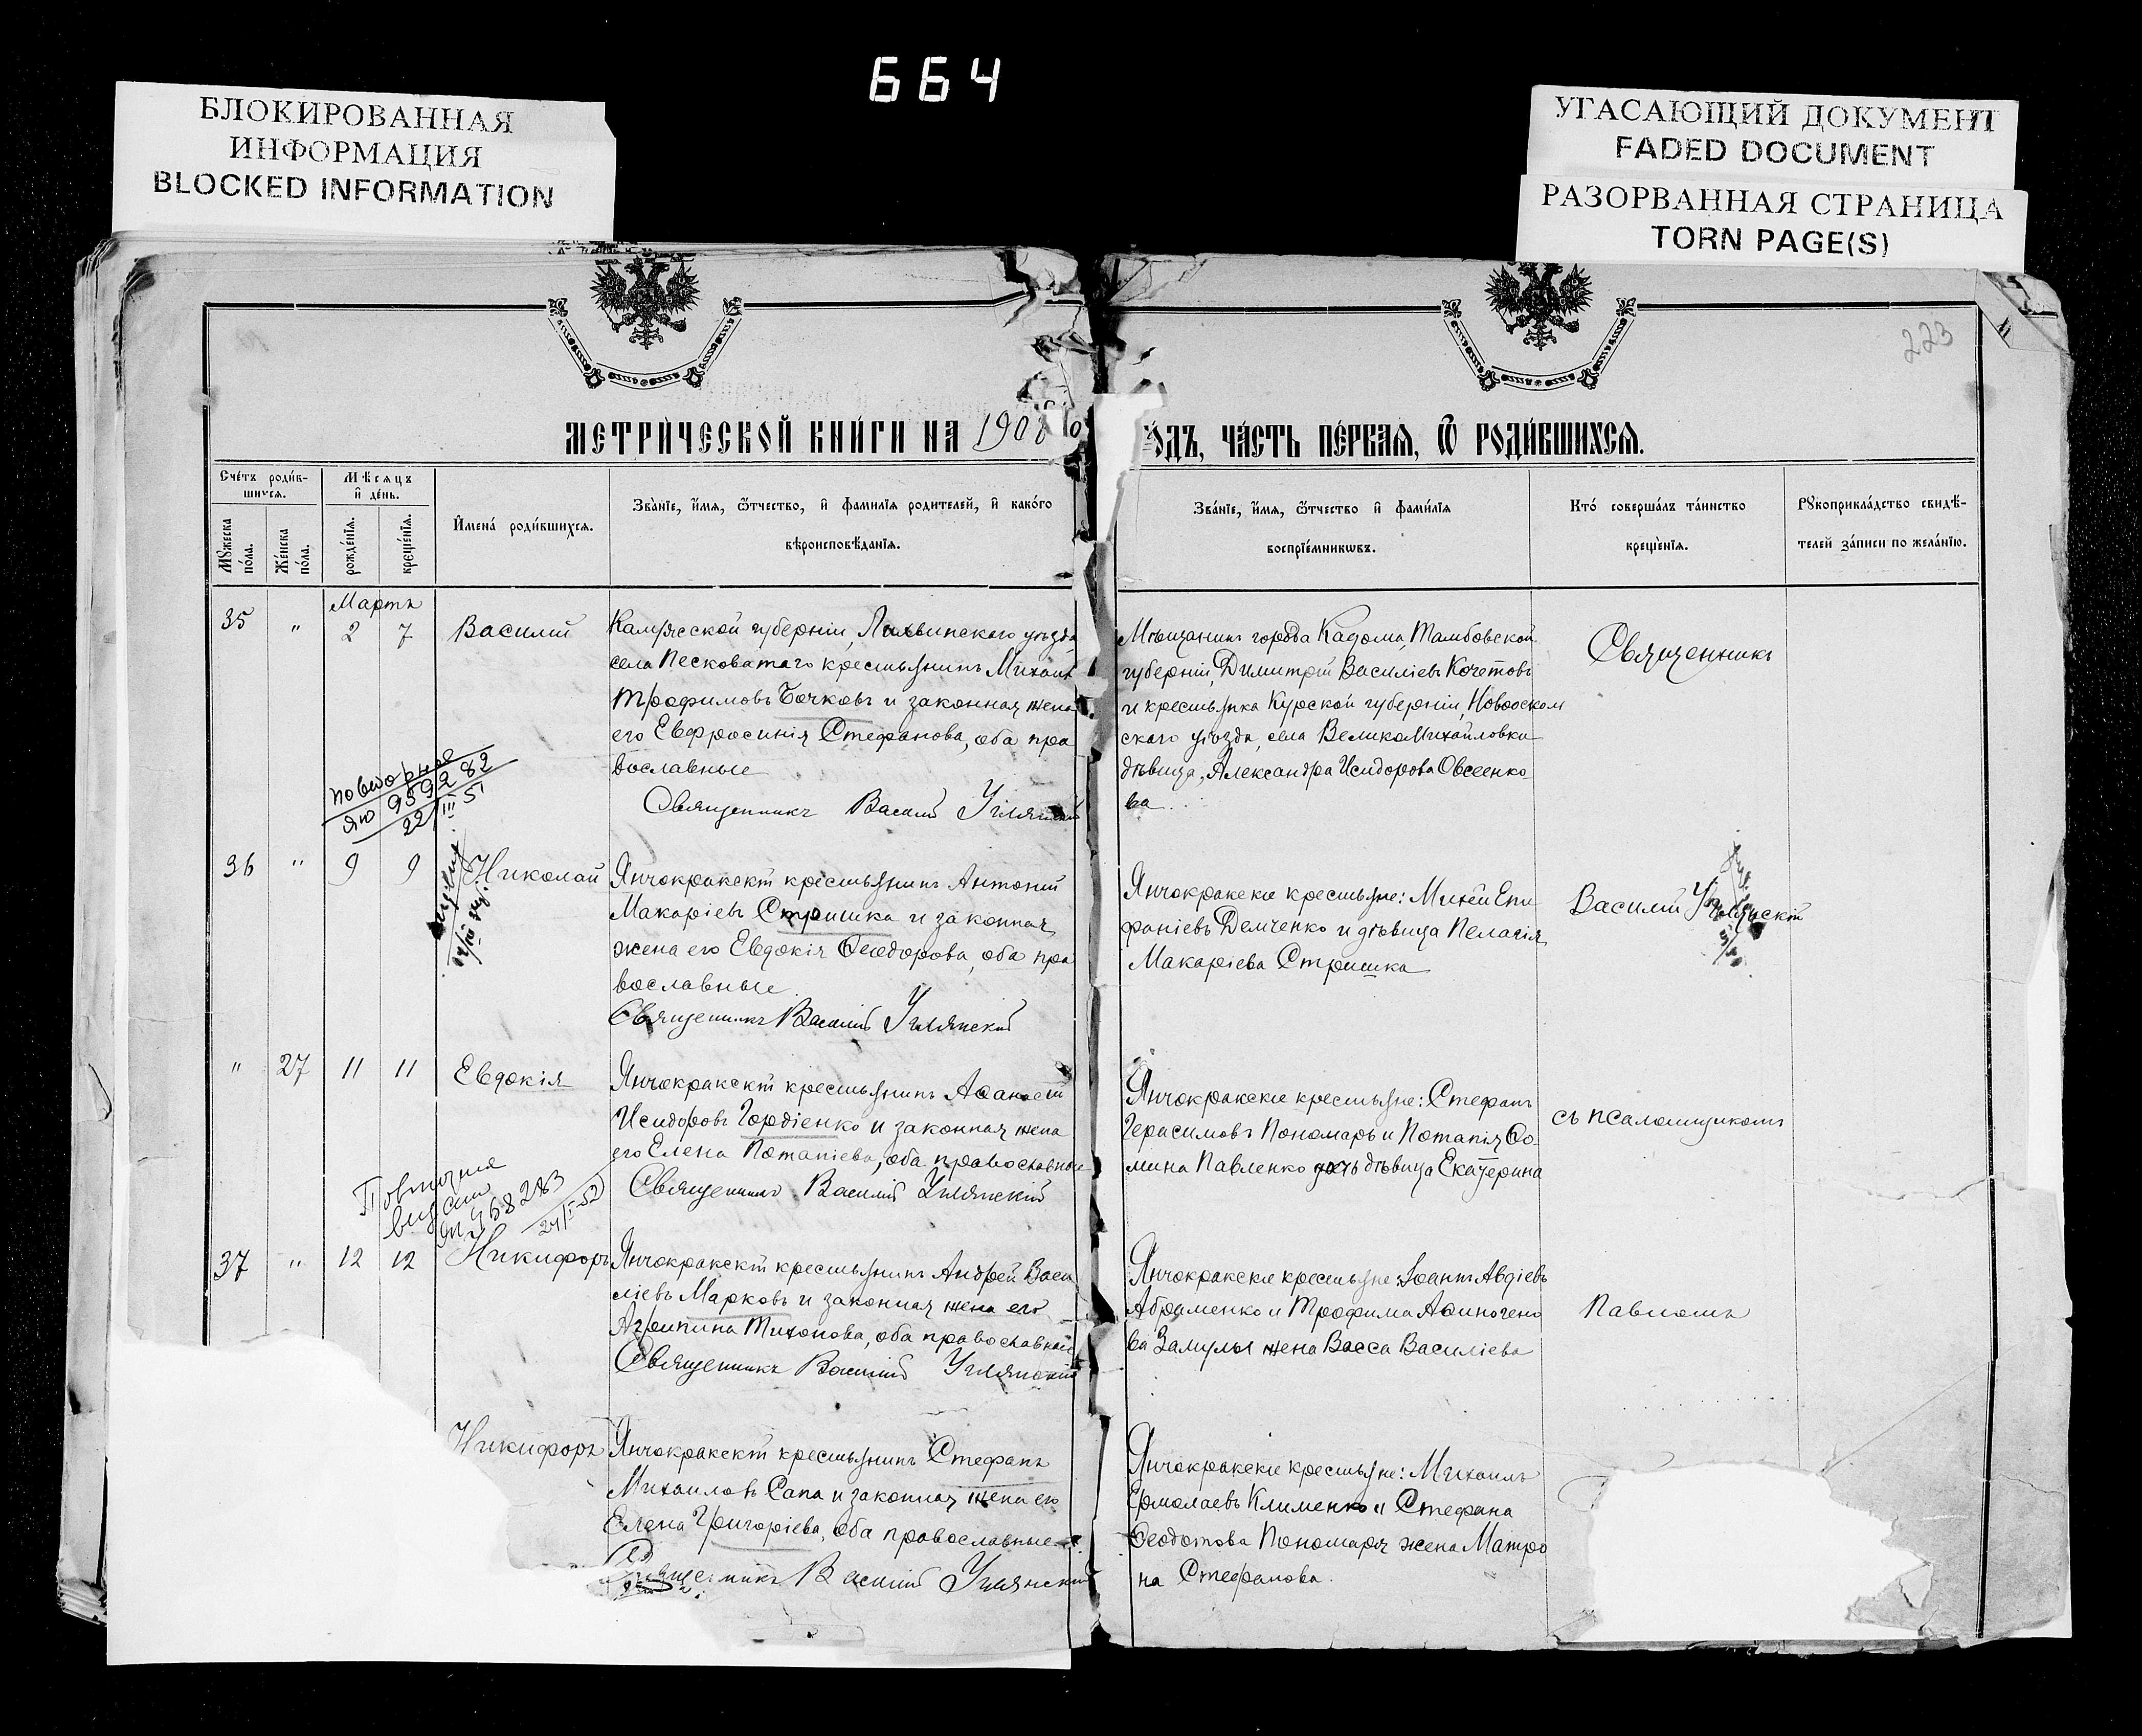 664
БЛОКИРОВАННАЯ
ИНФОРМАЦИЯ
BLOCKED INFORMATION
УГАСАЮЩИЙ ДОКУМЕНТ
FADED DOCUMENT
РАЗОРВАННАЯ СТРАНИЦА
TORN PAGE(S)
223
МЕТРИ́ЧЕСКОЙ КНИ́ГИ НА 1908
ОДЪ, ЧА́СТЬ ПЕ́РВАЯ, Ѿ РОДИ́ВШИХСЯ.
Сче́тъ роди́в-
шихся.
Мѣсяцъ
и де́нь.
Мꙋжеска
по́ла.
Же́нска
по́ла.
рожде́нїя.
креще́нїя.
И҆мена̀ роди́вшихся.
Зва́нїе, и҆́мя, ѻ҆́тчество, и҆ фами́лїя роди́телей, и҆ како́го
вѣроисповѣ́данїя.
Зва́нїе, и҆́мя, ѻ҆́тчество и҆ фами́лїя
воспрїе́мникѡвъ.
Кто̀ соверша́лъ та́инство
креще́нїя.
Рꙋкоприкла́дство свидѣ́-
телей за́писи по жела́нїю.
Мартъ
35 " 2 7 Василій
Калужской губерніи, Лихвинскаго уѣзда,
села Песковатаго крестьянинъ Михаилъ
Трофимовъ Бочковъ и законная жена
его Евфросинія Стефанова, оба пра
вославные
Священникъ Василій Углянскій
Мѣщанинъ города Кадома, Тамбовской
губерніи, Димитрій Василіевъ Кочетовъ
и крестьянка Курской губерніи, Новооскол
скаго уѣзда, села ВеликоМихайловки
дѣвица, Александра Исидорова Овсеенко
ва
Священникъ
повторное
яю 959282
22/III 51
36 " 9 9 Николай
Янчокракскій крестьянинъ Антоній
Макаріевъ Стришка и законная
жена его Евдокія Ѳеодорова, оба пра
вославные
Священникъ Василій Углянскій
Янчокракскіе крестьяне: Михей Епи
фаніевъ Демченко и дѣвица Пелагія
Макаріева Стришка
Василій Углянскій
" 27 11 11 Евдокія
Янчокракскій крестьянинъ Аѳанасій
Исидоровъ Гордіенко и законная жена
его Елена Потапіева, оба православные
Священникъ Василій Углянскій
Янчокракскіе крестьяне: Стефанъ
Герасимовъ Пономарь и Потапія Ѳо
мина Павленко дочь дѣвица Екатерина
съ псаломщикомъ
Повторное
выдано
468283
24/I-52
37 " 12 12 Никифоръ
Янчокракскій крестьянинъ Андрей Васи
ліевъ Марковъ и законная жена его
Агрипина Тихонова, оба православные
Священникъ Василій Углянскій
Янчокракскіе крестьяне: Іоаннъ Авдіевъ
Абраменко и Трофима Аѳиногено
ва Замулы жена Васса Василіева
Павломъ
Никифоръ
Янчокракскій крестьянинъ Стефанъ
Михаиловъ Сапа и законная жена его
Елена Григоріева, оба православные
Священникъ Василій Углянскій
Янчокракскіе крестьяне: Михаилъ
Ермолаевъ Клименко и Стефана
Ѳеодотова Пономаря жена Матро
на Стефанова.